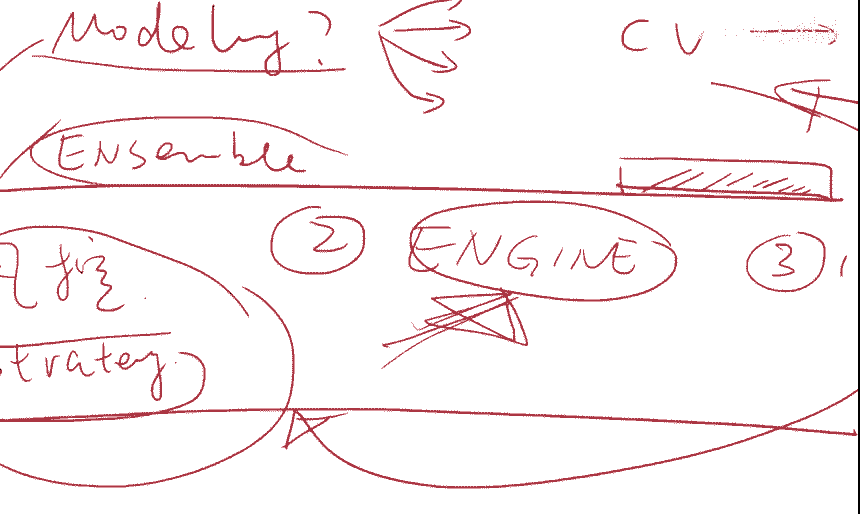 Modeling? CV
ENSemble
② ENGINE ③
Stratey